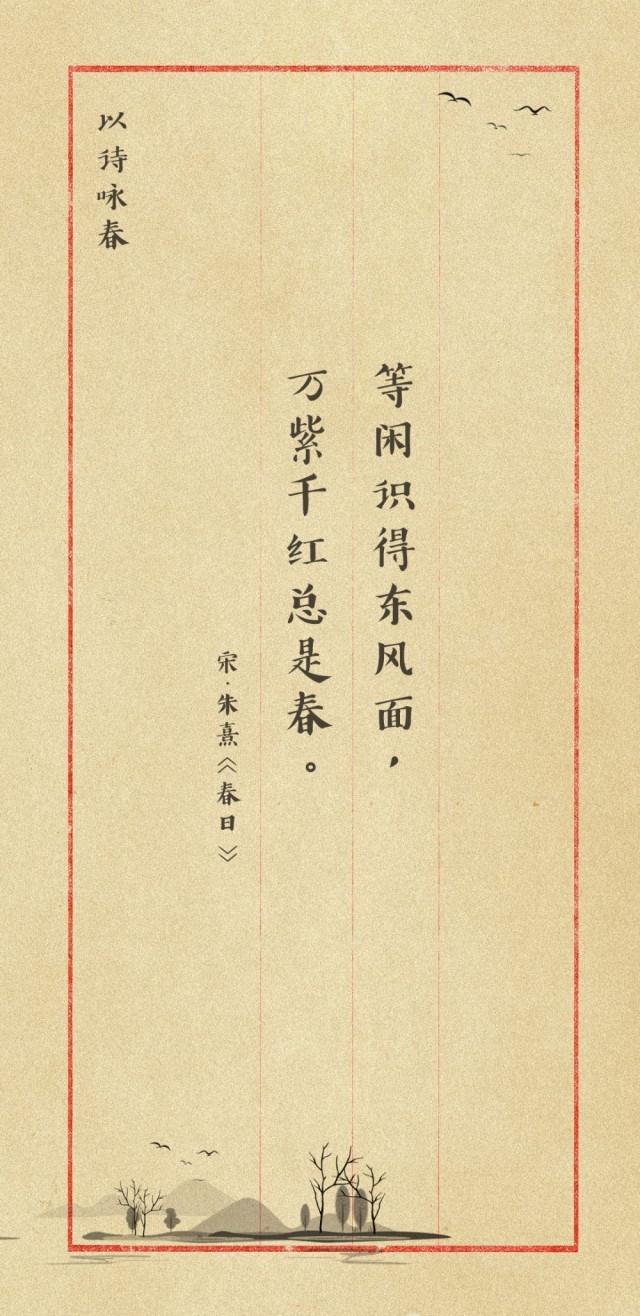 以诗咏春
等闲识得东风面，
万紫千红总是春。
宋·朱熹《春日》